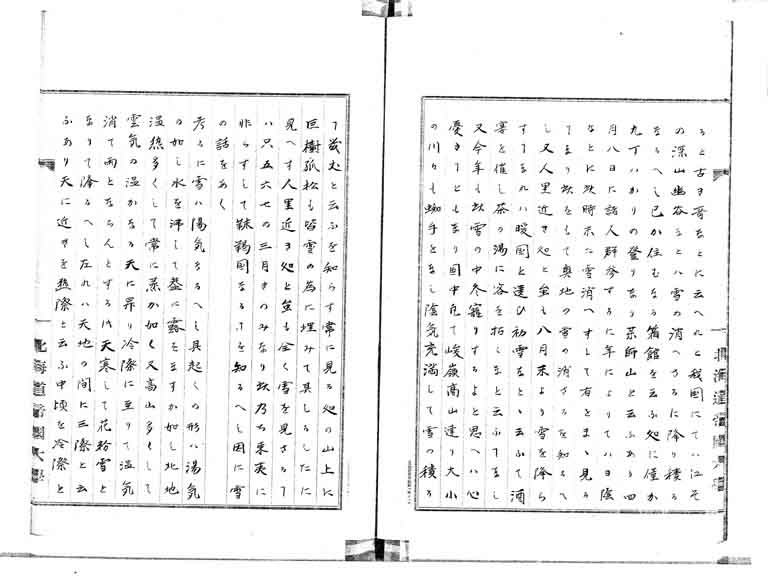 ると古き哥なとに云へれと我国にてハ江そ
の深山幽谷なとハ雪の消へさるに降り積る
なるへし己か住むなる箱館を云ふ処に僅か
九丁はかりの登りなる薬師山と云ふあり四
月八日に諸人群参するに年によりてハ日陰
なとに此時未た雪消へすして有をまゝ見る
てまり此をもて奥地の雪の消さるを知るへ
し又人里近き処と至も八月末より雪を降ら
すてまれハ暖国と違ひ初雪をとゝ云ふて酒
宴を催し茶の湯に客を招くなと云ふてまし
又今年も此雪の中冬籠りするよと思へハ心
憂きてともなり国中凡て峻嶺高山連り大小
の川々も蜘手をなし陰気充満して雪の積る
て幾丈と云ふを知らす常に見る処の山上に
巨樹孤松も皆雪の為に埋みて其しるしたに
見へす人里近き処と至も全く雪を見さるて
ハ只五六七の三月きのみなり此乃ち東夷に
非らすして靺鞨国なるてを知るへし因に雪
の話をあく
考るに雪ハ陽気なるへし其起くの形ハ湯気
の如し水を沸して盛に露をますか如し北地
湿熱多くして常に蒸か如く又高山多くして
雲気の温かなる天に昇り冷際に至りて湿気
消て雨とならんとするハ天寒して花粉雪と
なりて降るへし左れハ天地の間に三際と云
ふあり天に近きを熱際と云ふ中頃を冷際と
北海道帝国大学